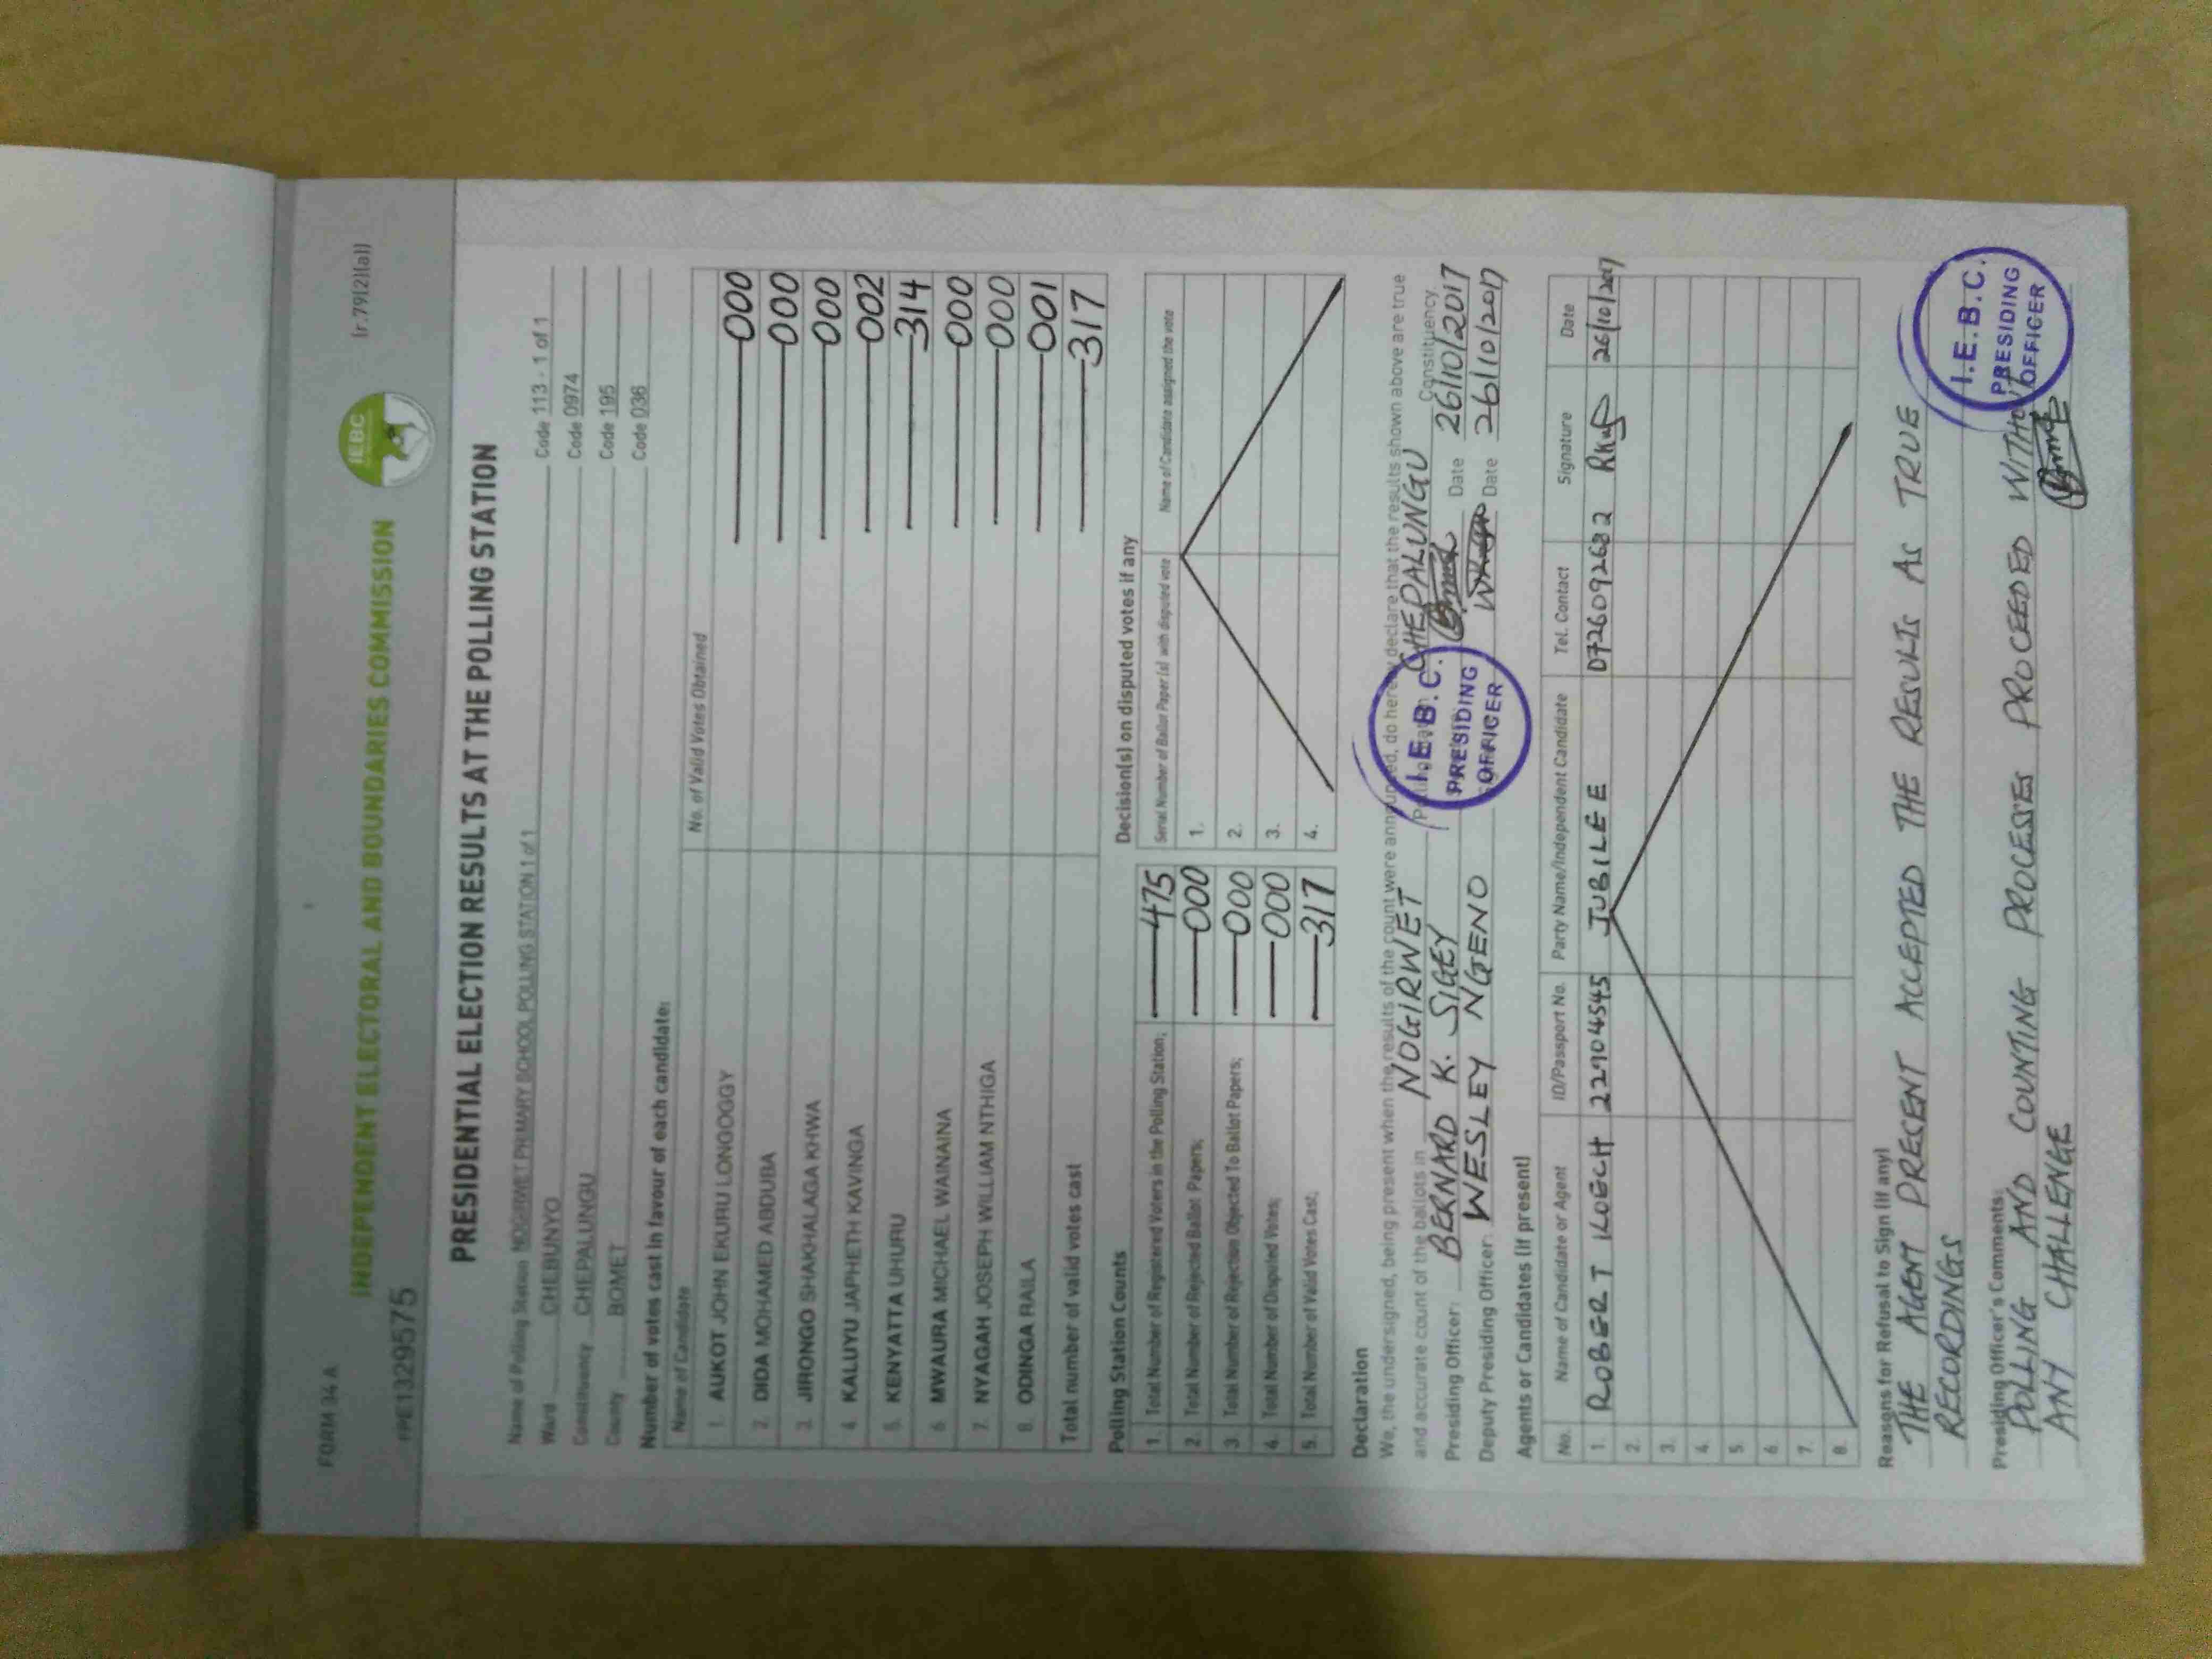 FORM 34 A
(r.79(2)(a))
IEBC
INDEPENDENT ELECTORAL AND BOUNDARIES COMMISSION
PE1329575
PRESIDENTIAL ELECTION RESULTS AT THE POLLING STATION
Name of Polling Station NOGIRWET PRIMARY SCHOOL POLLING STATION 1 of 1 Code 113 - 1 of 1
Ward CHEBUNYO Code 0974
Constituency CHEPALUNGU Code 195
County BOMET Code 036
Number of votes cast in favour of each candidate:
Name of Candidate No. of Valid Votes Obtained
1. AUKOT JOHN EKURU LONGOGGY 000
2. DIDA MOHAMED ABDUBA 000
3. JIRONGO SHAKHALAGA KHWA 000
4. KALUYU JAPHETH KAVINGA 002
5. KENYATTA UHURU 314
6. MWAURA MICHAEL WAINAINA 000
7. NYAGAH JOSEPH WILLIAM NTHIGA 000
8. ODINGA RAILA 001
Total number of valid votes cast 317
Polling Station Counts
1. Total Number of Registered Voters in the Polling Station; 475
2. Total Number of Rejected Ballot Papers; 000
3. Total Number of Rejection Objected To Ballot Papers; 000
4. Total Number of Disputed Votes; 000
5. Total Number of Valid Votes Cast; 317
Decision(s) on disputed votes if any
Serial Number of Ballot Paper (s) with disputed vote Name of Candidate assigned the vote
1.
2.
3.
4.
Declaration
We, the undersigned, being present when the results of the count were announced, do hereby declare that the results shown above are true
and accurate count of the ballots in NOGIRWET CHEPALUNGU Constituency.
Presiding Officer: BERNARD K. SIGEY Date 26/10/2017
Deputy Presiding Officer: WESLEY NGENO Date 26/10/2017
I.E.B.C.
PRESIDING
OFFICER
Agents or Candidates (if present)
No. Name of Candidate or Agent ID/Passport No. Party Name/Independent Candidate Tel. Contact Signature Date
1. ROBERT KOECH 22904545 JUBILEE 0726092682 26/10/2017
2.
3.
4.
5.
6.
7.
8.
Reasons for Refusal to Sign (if any)
THE AGENT PRECENT ACCEPTED THE RESULTS AS TRUE
RECORDINGS
Presiding Officer's Comments:
POLLING AND COUNTING PROCESSES PROCEEDED WITHOUT
ANY CHALLENGE
I.E.B.C.
PRESIDING
OFFICER